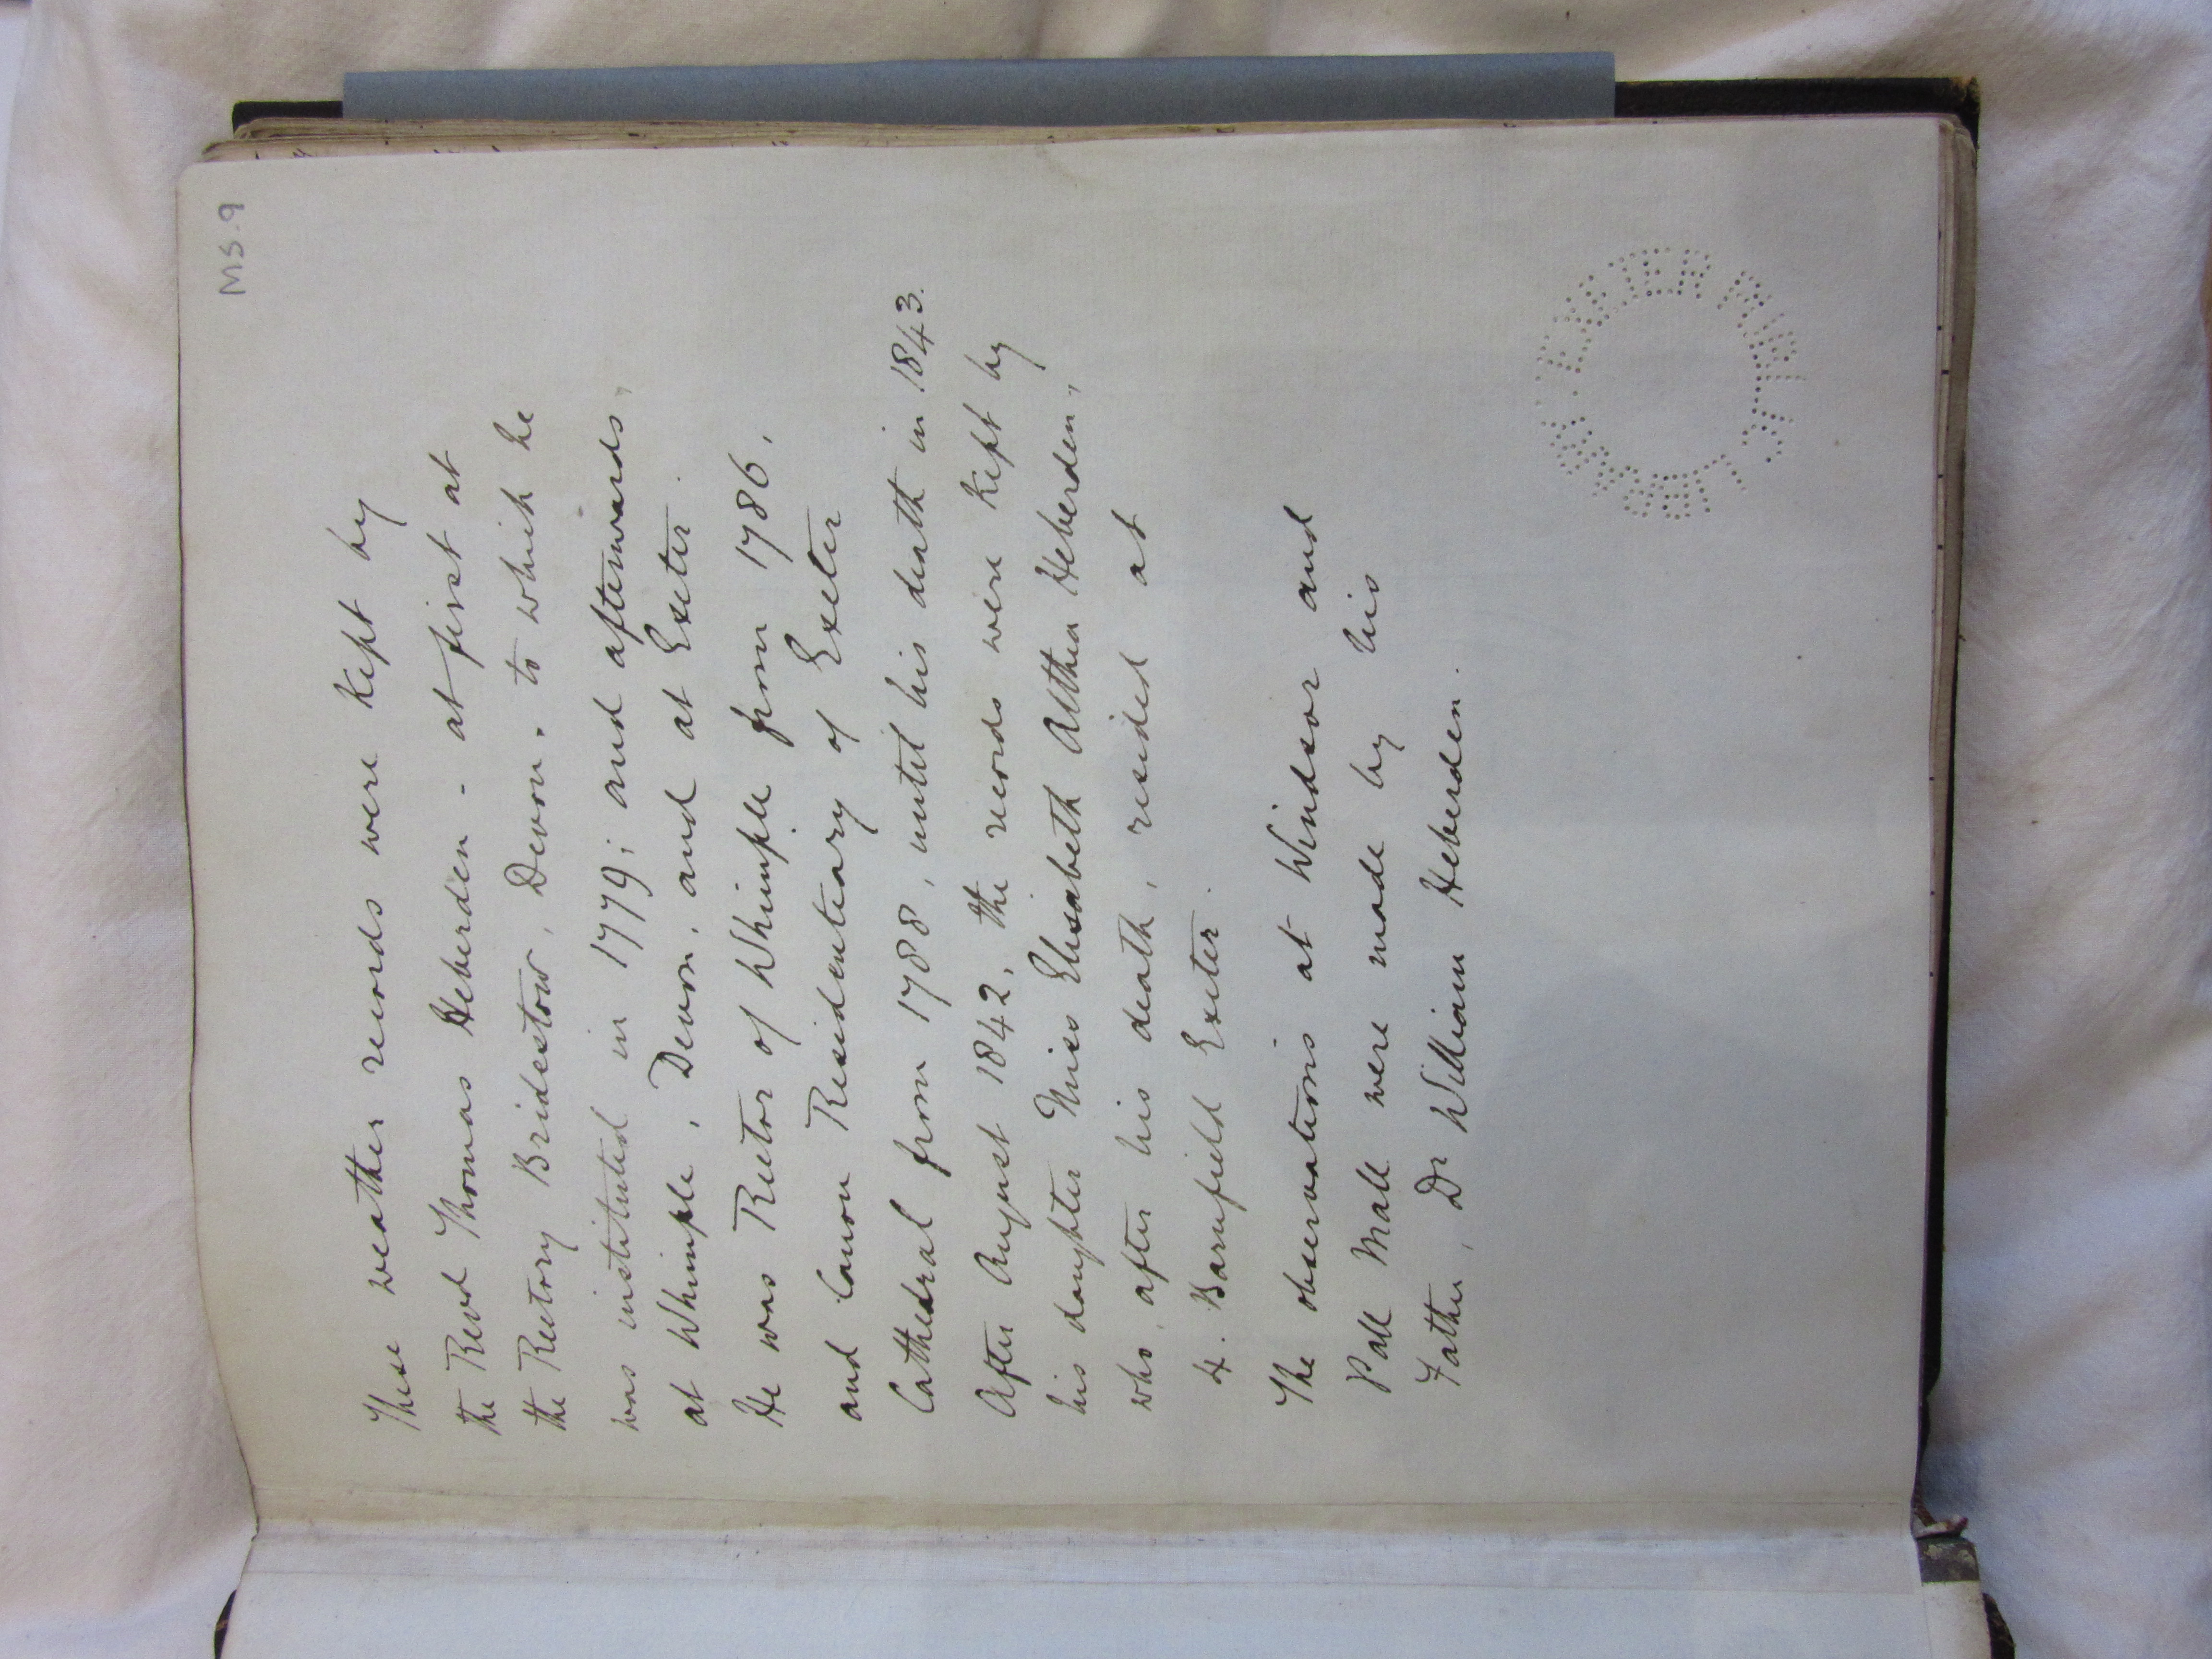 MS. 9
These weather records were kept by
the Revd Thomas Heberden - at first at
the Rectory Bridestow, Devon. to which he
was instituted in 1779; and afterwards
at Whimple, Devon, and at Exeter.
He was Rector of Whimple from 1786,
and Canon Residentiary of Exeter
Cathedral from 1788, until his death in 1843.
After August 1842, the records were kept by
his daughter Miss Elisabeth Althea Heberden,
who, after his death, resided at
4. Barnfield Exeter.
The observations at Windsor and
Pall Mall were made by his
Father, Dr William Heberden.